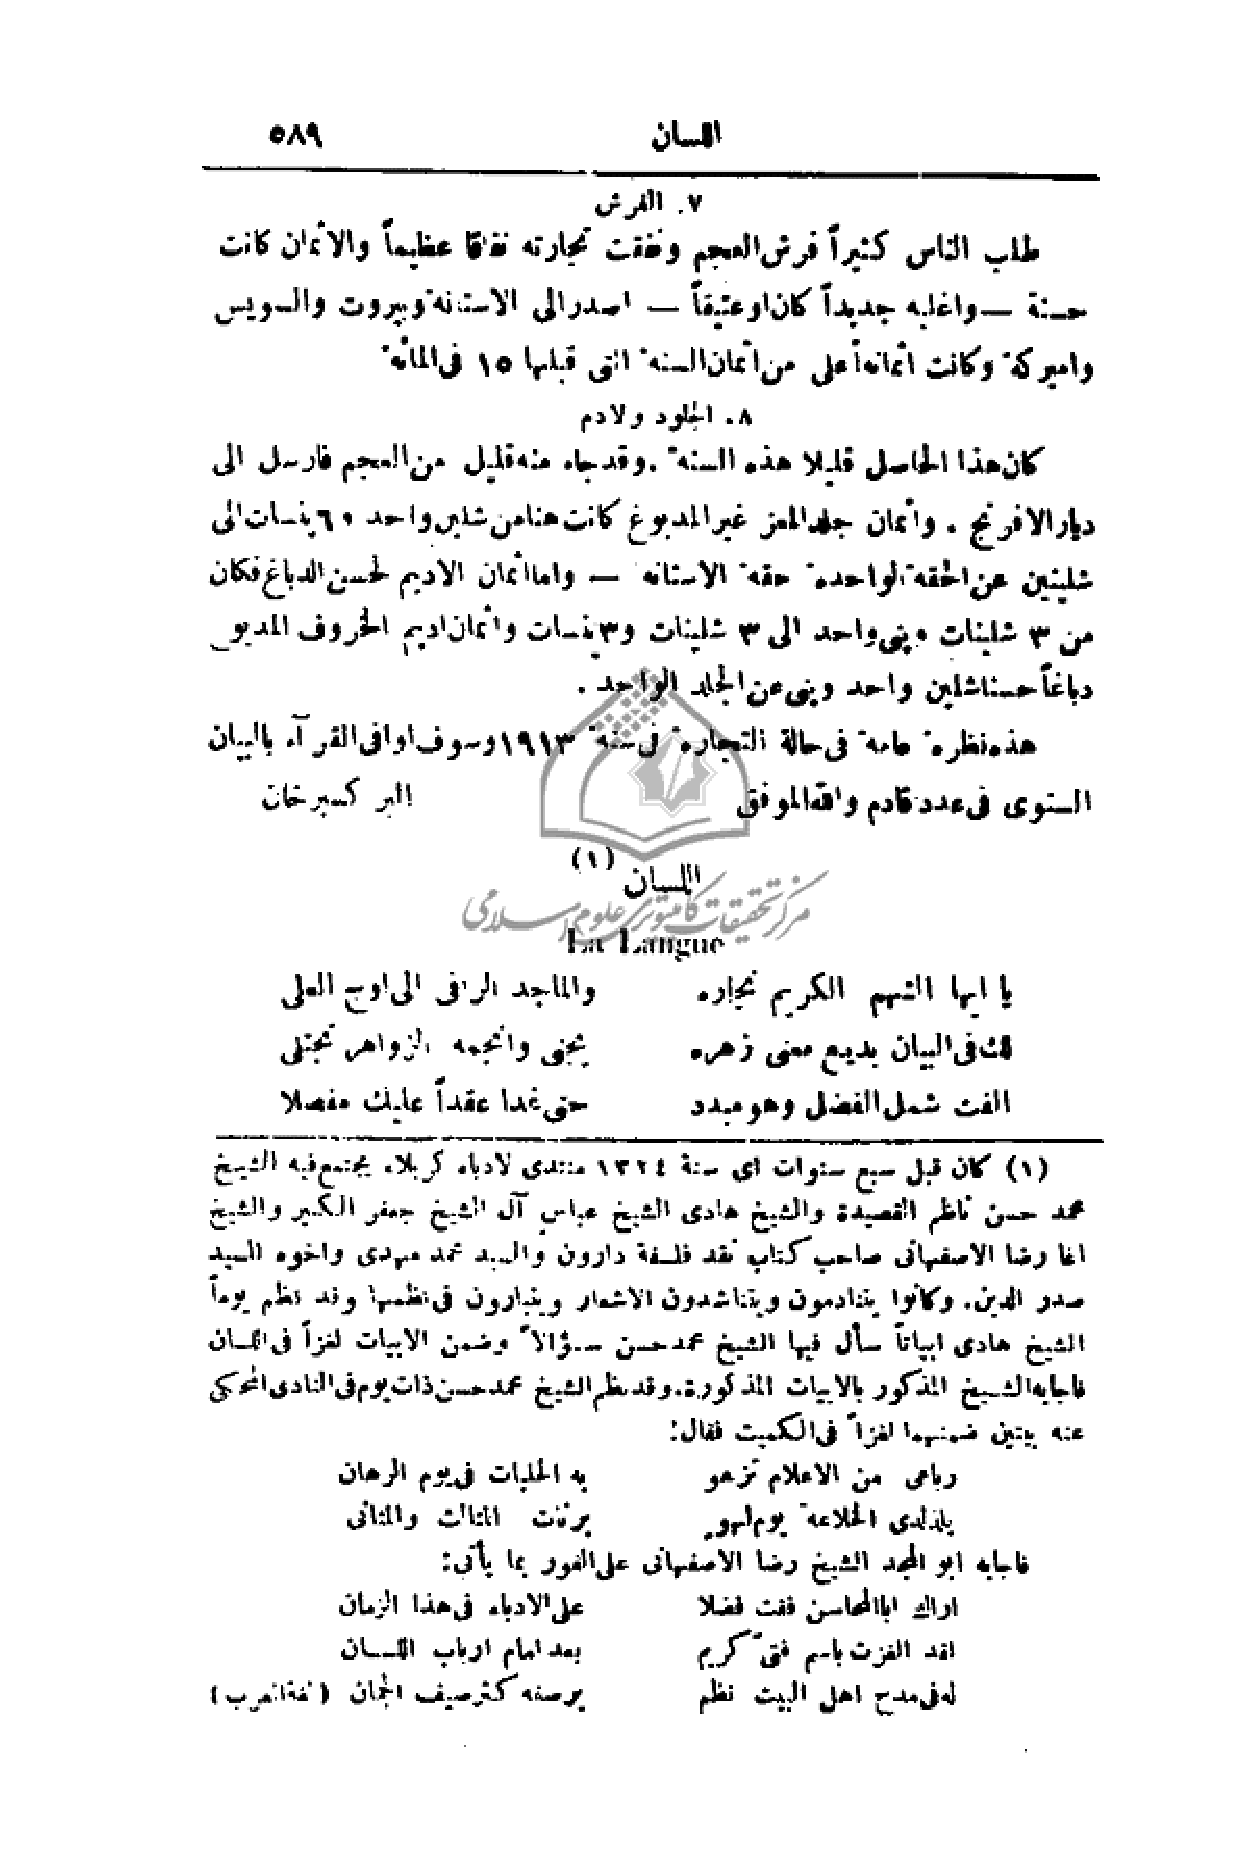 اللسان ٥٨٩
٧. الفرش
طلب الناس كثيراً فرش العجم ونفقت تجارته نفاقا عظيماً والاثمان كانت
حسنة — واغلبه جديداً كان او عتيقاً — اصدر الى الاستانة وبيروت والسويس
واميركة وكانت اثمانه أعلى من اثمان السنة التي قبلها ١٥ في المائة
٨. الجلود ولادم
كان هذا الحاصل قليلا هذه السنة. وقد جاء منه قليل من العجم فارسل الى
ديار الافرنج. واثمان جلد المعز غير المدبوغ كانت هنا من شلين واحد و ٦ پنسات الى
شلينين عن الحقة الواحدة حقة الاستانة — واما اثمان الاديم لحسن الدباغ فكان
من ٣ شلينات وپني واحد الى ٣ شلينات و٣ پنسات واثمان اديم الخروف المدبو
دباغاً حسنا شلين واحد وپني عن الجلد الواحد.
هذه نظرة عامة في حالة التجارة في سنة ١٩١٣ وسوف اوافى القرآء بالبيان
السنوى في عدد قادم والله الموفق البر كسبرخان
اللسان (١)
مرکز تحقیقات کامپیوتری علوم اسلامی
La Langue
يا ايها الشهم الكريم نجاره والماجد الراقى الى اوج العلى
لك في البيان بديع معنى زهره يجنى وانجمه الزواهر تجتلى
الفت شمل الفضل وهو مبدد حتى غدا عقداً عليك مفصلا
(١) كان قبل سبع سنوات اي سنة ١٣٢٤ منتدى لادباء كربلاء يجتمع فيه الشيخ
محمد حسن ناظم القصيدة والشيخ هادى الشيخ عباس آل الشيخ جعفر الكبير والشيخ
اغا رضا الاصفهانى صاحب كتاب نقد فلسفة دارون والسيد محمد مهدى واخوه السيد
صدر الدين. وكانوا يتنادمون ويتناشدون الاشعار ويتبارون في نظمها وقد نظم يوماً
الشيخ هادى ابياتاً سأل فيها الشيخ محمد حسن سؤالاً وضمن الابيات لغزاً في اللسان
فاجابه الشيخ المذكور بالابيات المذكورة. وقد نظم الشيخ محمد حسن ذات يوم في النادى المحكي
عنه بيتين ضمنهما لغزاً في الكميت فقال:
رباعي من الاعلام تزهو به الحلبات في يوم الرهان
يلذ لدى الخلاعة يوم لهو برنات المثالث والمثانى
فاجابه ابو المجد الشيخ رضا الاصفهانى على الفور بما يأتي:
اراك ابا المحاسن فقت فضلا على الادباء في هذا الزمان
لقد الغزت باسم فتى كريم يعد امام ارباب اللسان
له في مدح اهل البيت نظم يرصفه كترصيف الجمان (لغة العرب)